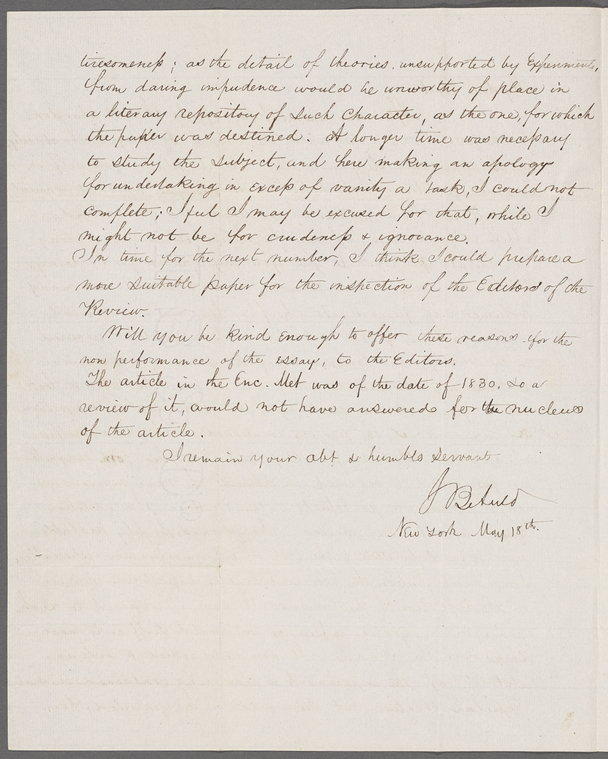 tiresomeness; as the detail of theories unsupported by Experiments,
from daring impudence would be unworthy of place in
a literary repository of such character, as the one, for which
the paper was destined. A longer time was necessary
to study the subject, and here making an apology
for undertaking in excess of vanity a task, I could not
complete; I feel I may be excused for that, while I
might not be for crudeness & ignorance.
In time for the next number, I think I could prepare a
more suitable paper for the inspection of the Editors of the
Review.
Will you be kind enough to offer these reasons for the
non performance of the essay, to the Editors.
The article in the Enc. Met was of the date of 1830. so a
review of it, would not have answered for the nucleus
of the article.
I remain your obt & humble servant
New York May 18th.